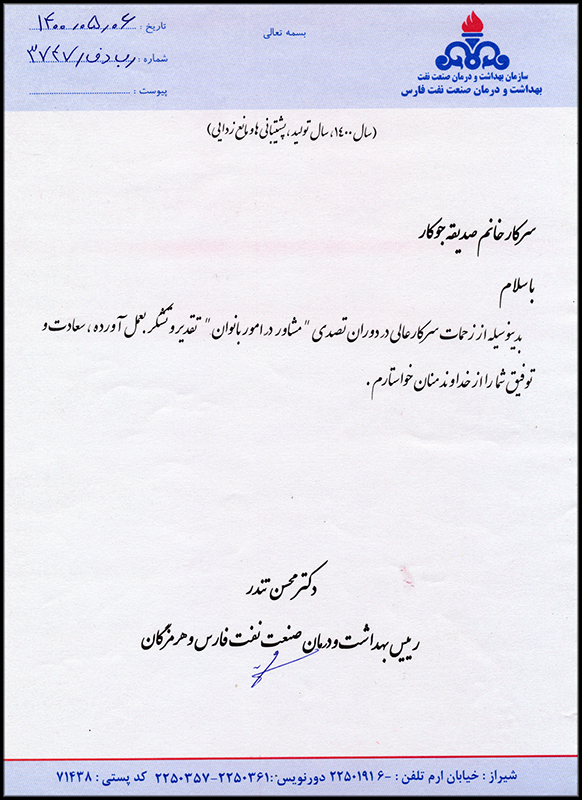 بسمه تعالی
تاریخ : ۱۴۰۰،۰۵،۰۶
شماره : رب دف/۳۷۴۷
پیوست :
سازمان بهداشت و درمان صنعت نفت
بهداشت و درمان صنعت نفت فارس
(سال ۱۴۰۰، سال تولید ، پشتیبانی ها و مانع زدایی)
سرکار خانم صدیقه جوکار
با سلام
بدینوسیله از زحمات سرکارعالی در دوران تصدی "مشاور در امور بانوان" تقدیر و تشکر بعمل آورده ، سعادت و
توفیق شما را از خداوند منان خواستارم .
دکتر محسن تندر
رییس بهداشت و درمان صنعت نفت فارس و هرمزگان
شیراز : خیابان ارم تلفن : ۶-۲۲۵۰۱۹۱ دورنویس: ۲۲۵۰۳۶۱-۲۲۵۰۳۵۷ کد پستی : ۷۱۴۳۸